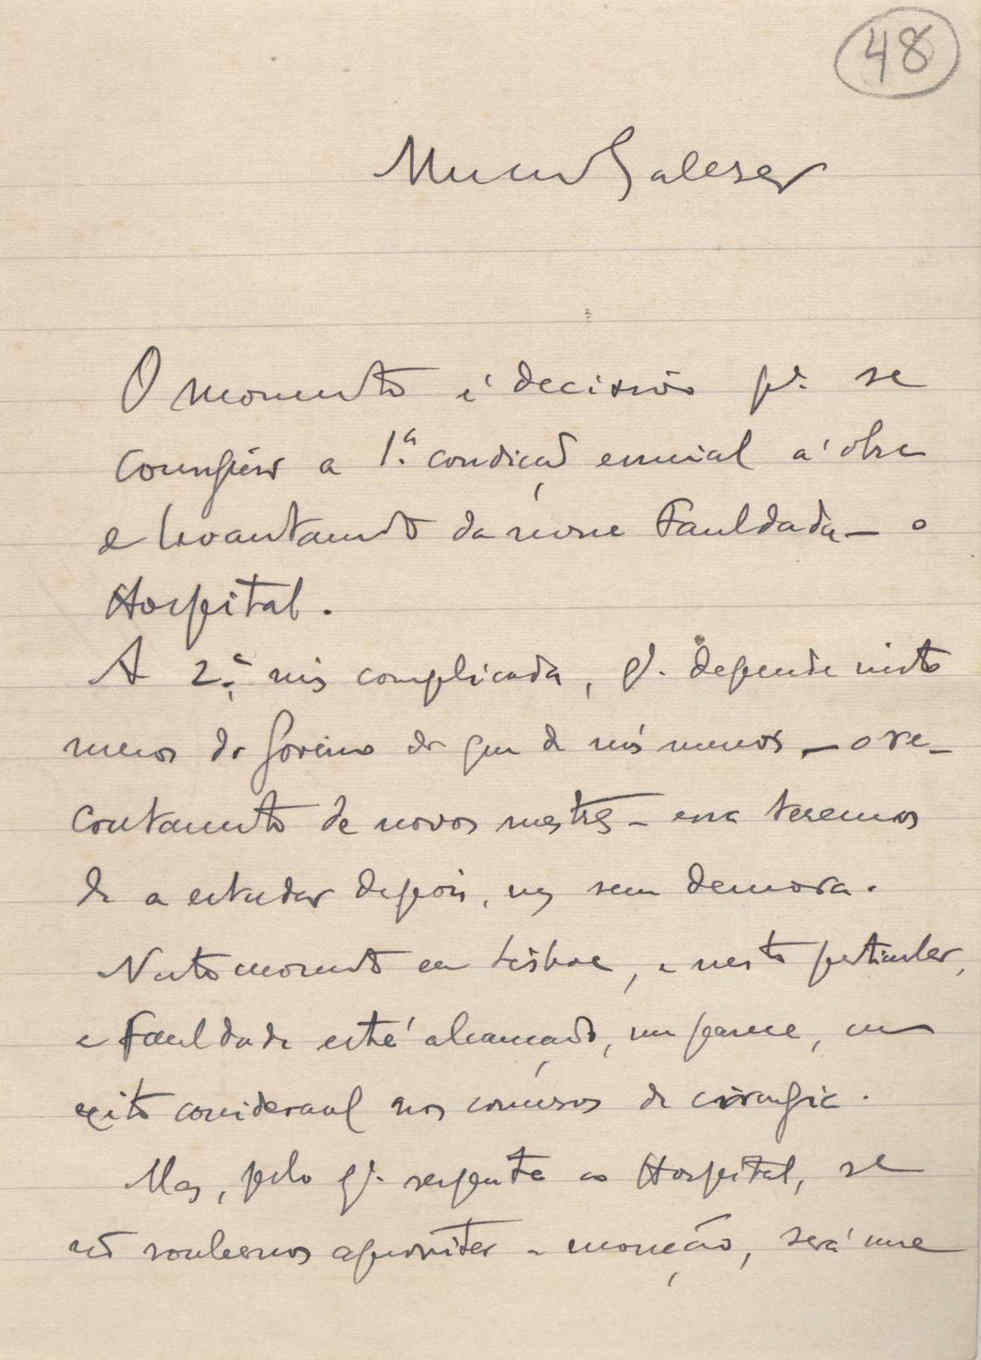 48
Meu caro
O momento é decisivo pª. se
conseguir a 1.ª condição essencial á obra
e levantamento da nossa Faculdade — o
Hospital.
A 2.ª, mais complicada, qª. depende nisto
menos do Governo do que de nós mesmos — o re-
crutamento de novos mestres — essa teremos
de a estudar depois, mas sem demora.
Neste momento em Lisboa, e neste particular,
a Faculdade está alcançando, me parece, um
exito consideravel nos concursos de cirurgia.
Mas, pelo qª. respeita ao Hospital, se
não soubermos aproveitar a monção, será uma